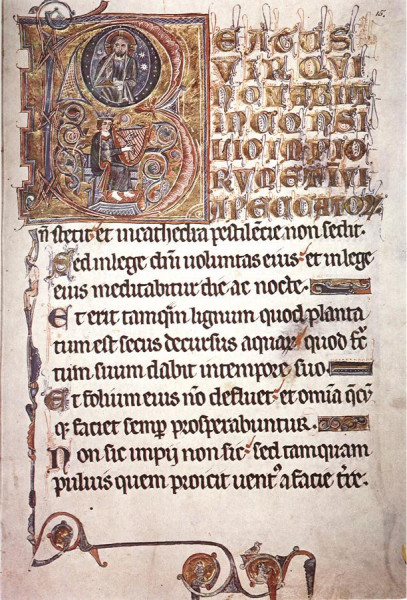 15.
BEATUS
VIR QVI
NON ABIIT
IN CONSI
LIO IMPIO
RVM ET IN VI
A PECCATOꝝ
ñ stetit et in cathedra pestilẽcie non sedit.
Sed in lege dñi voluntas eius: et in lege
eius meditabitur die ac nocte.
Et erit tamqm̃ lignum quod planta
tum est secus decursus aquaꝝ: quod fr̃c
tum suum dabit in tempore suo.
Et folium eius nõ defluet: et omĩa qͨũ
qꝫ faciet semꝑ prosperabuntur.
Non sic impij non sic: sed tamquam
puluis quem proicit uentꝰ a facie t̃re.